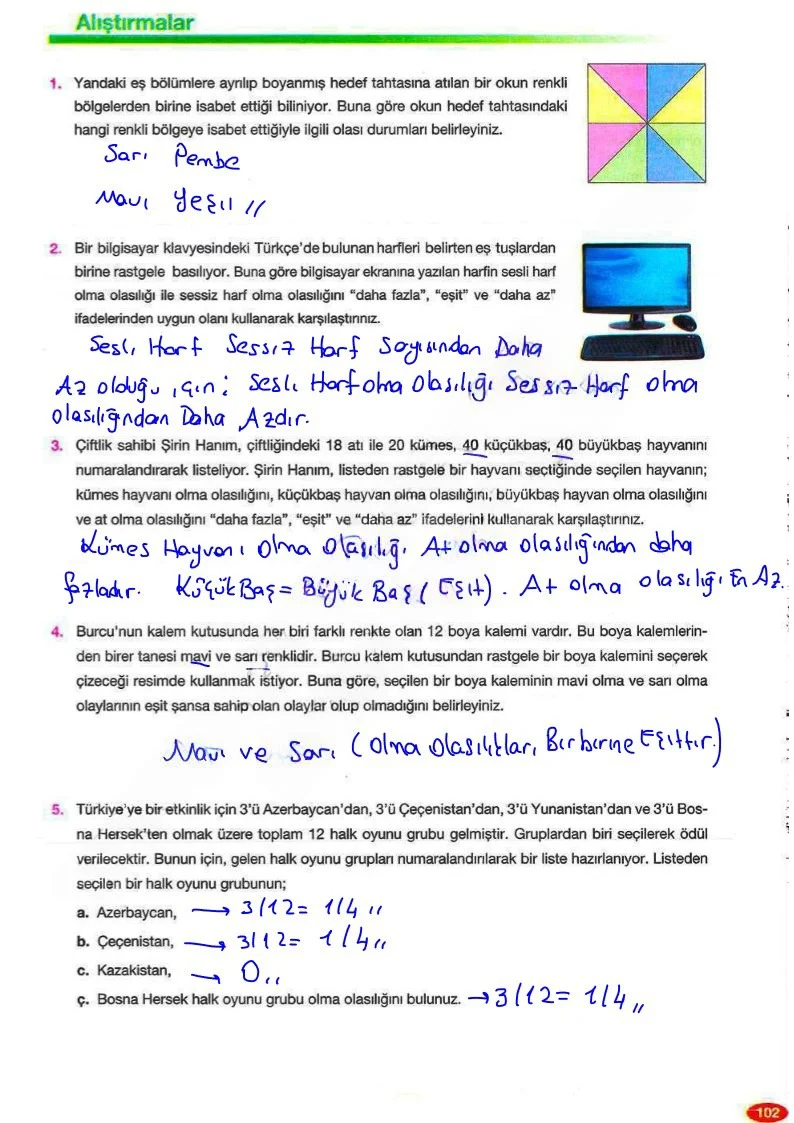 Alıştırmalar
1. Yandaki eş bölümlere ayrılıp boyanmış hedef tahtasına atılan bir okun renkli
bölgelerden birine isabet ettiği biliniyor. Buna göre okun hedef tahtasındaki
hangi renkli bölgeye isabet ettiğiyle ilgili olası durumları belirleyiniz.
Sarı Pembe
Mavi Yeşil //
2. Bir bilgisayar klavyesindeki Türkçe'de bulunan harfleri belirten eş tuşlardan
birine rastgele basılıyor. Buna göre bilgisayar ekranına yazılan harfin sesli harf
olma olasılığı ile sessiz harf olma olasılığını “daha fazla”, “eşit” ve “daha az”
ifadelerinden uygun olanı kullanarak karşılaştırınız.
Sesli Harf Sessiz Harf Sayısından Daha
Az olduğu için; Sesli Harf olma Olasılığı Sessiz Harf olma
olasılığından Daha Azdır.
3. Çiftlik sahibi Şirin Hanım, çiftliğindeki 18 atı ile 20 kümes, 40 küçükbaş, 40 büyükbaş hayvanını
numaralandırarak listeliyor. Şirin Hanım, listeden rastgele bir hayvanı seçtiğinde seçilen hayvanın;
kümes hayvanı olma olasılığını, küçükbaş hayvan olma olasılığını, büyükbaş hayvan olma olasılığını
ve at olma olasılığını “daha fazla”, “eşit” ve “daha az” ifadelerini kullanarak karşılaştırınız.
Kümes Hayvanı Olma Olasılığı At olma olasılığından daha
fazladır. Küçük Baş = Büyük Baş ( Eşit) . At olma olasılığı En Az.
4. Burcu'nun kalem kutusunda her biri farklı renkte olan 12 boya kalemi vardır. Bu boya kalemlerin-
den birer tanesi mavi ve sarı renklidir. Burcu kalem kutusundan rastgele bir boya kalemini seçerek
çizeceği resimde kullanmak istiyor. Buna göre, seçilen bir boya kaleminin mavi olma ve sarı olma
olaylarının eşit şansa sahip olan olaylar olup olmadığını belirleyiniz.
Mavi ve Sarı ( Olma Olasılıkları Birbirine Eşittir.)
5. Türkiye'ye bir etkinlik için 3'ü Azerbaycan'dan, 3'ü Çeçenistan'dan, 3'ü Yunanistan'dan ve 3'ü Bos-
na Hersek'ten olmak üzere toplam 12 halk oyunu grubu gelmiştir. Gruplardan biri seçilerek ödül
verilecektir. Bunun için, gelen halk oyunu grupları numaralandırılarak bir liste hazırlanıyor. Listeden
seçilen bir halk oyunu grubunun;
a. Azerbaycan, → 3/12= 1/4 //
b. Çeçenistan, → 3/12= 1/4 //
c. Kazakistan, → 0 //
ç. Bosna Hersek halk oyunu grubu olma olasılığını bulunuz. → 3/12= 1/4 //
102